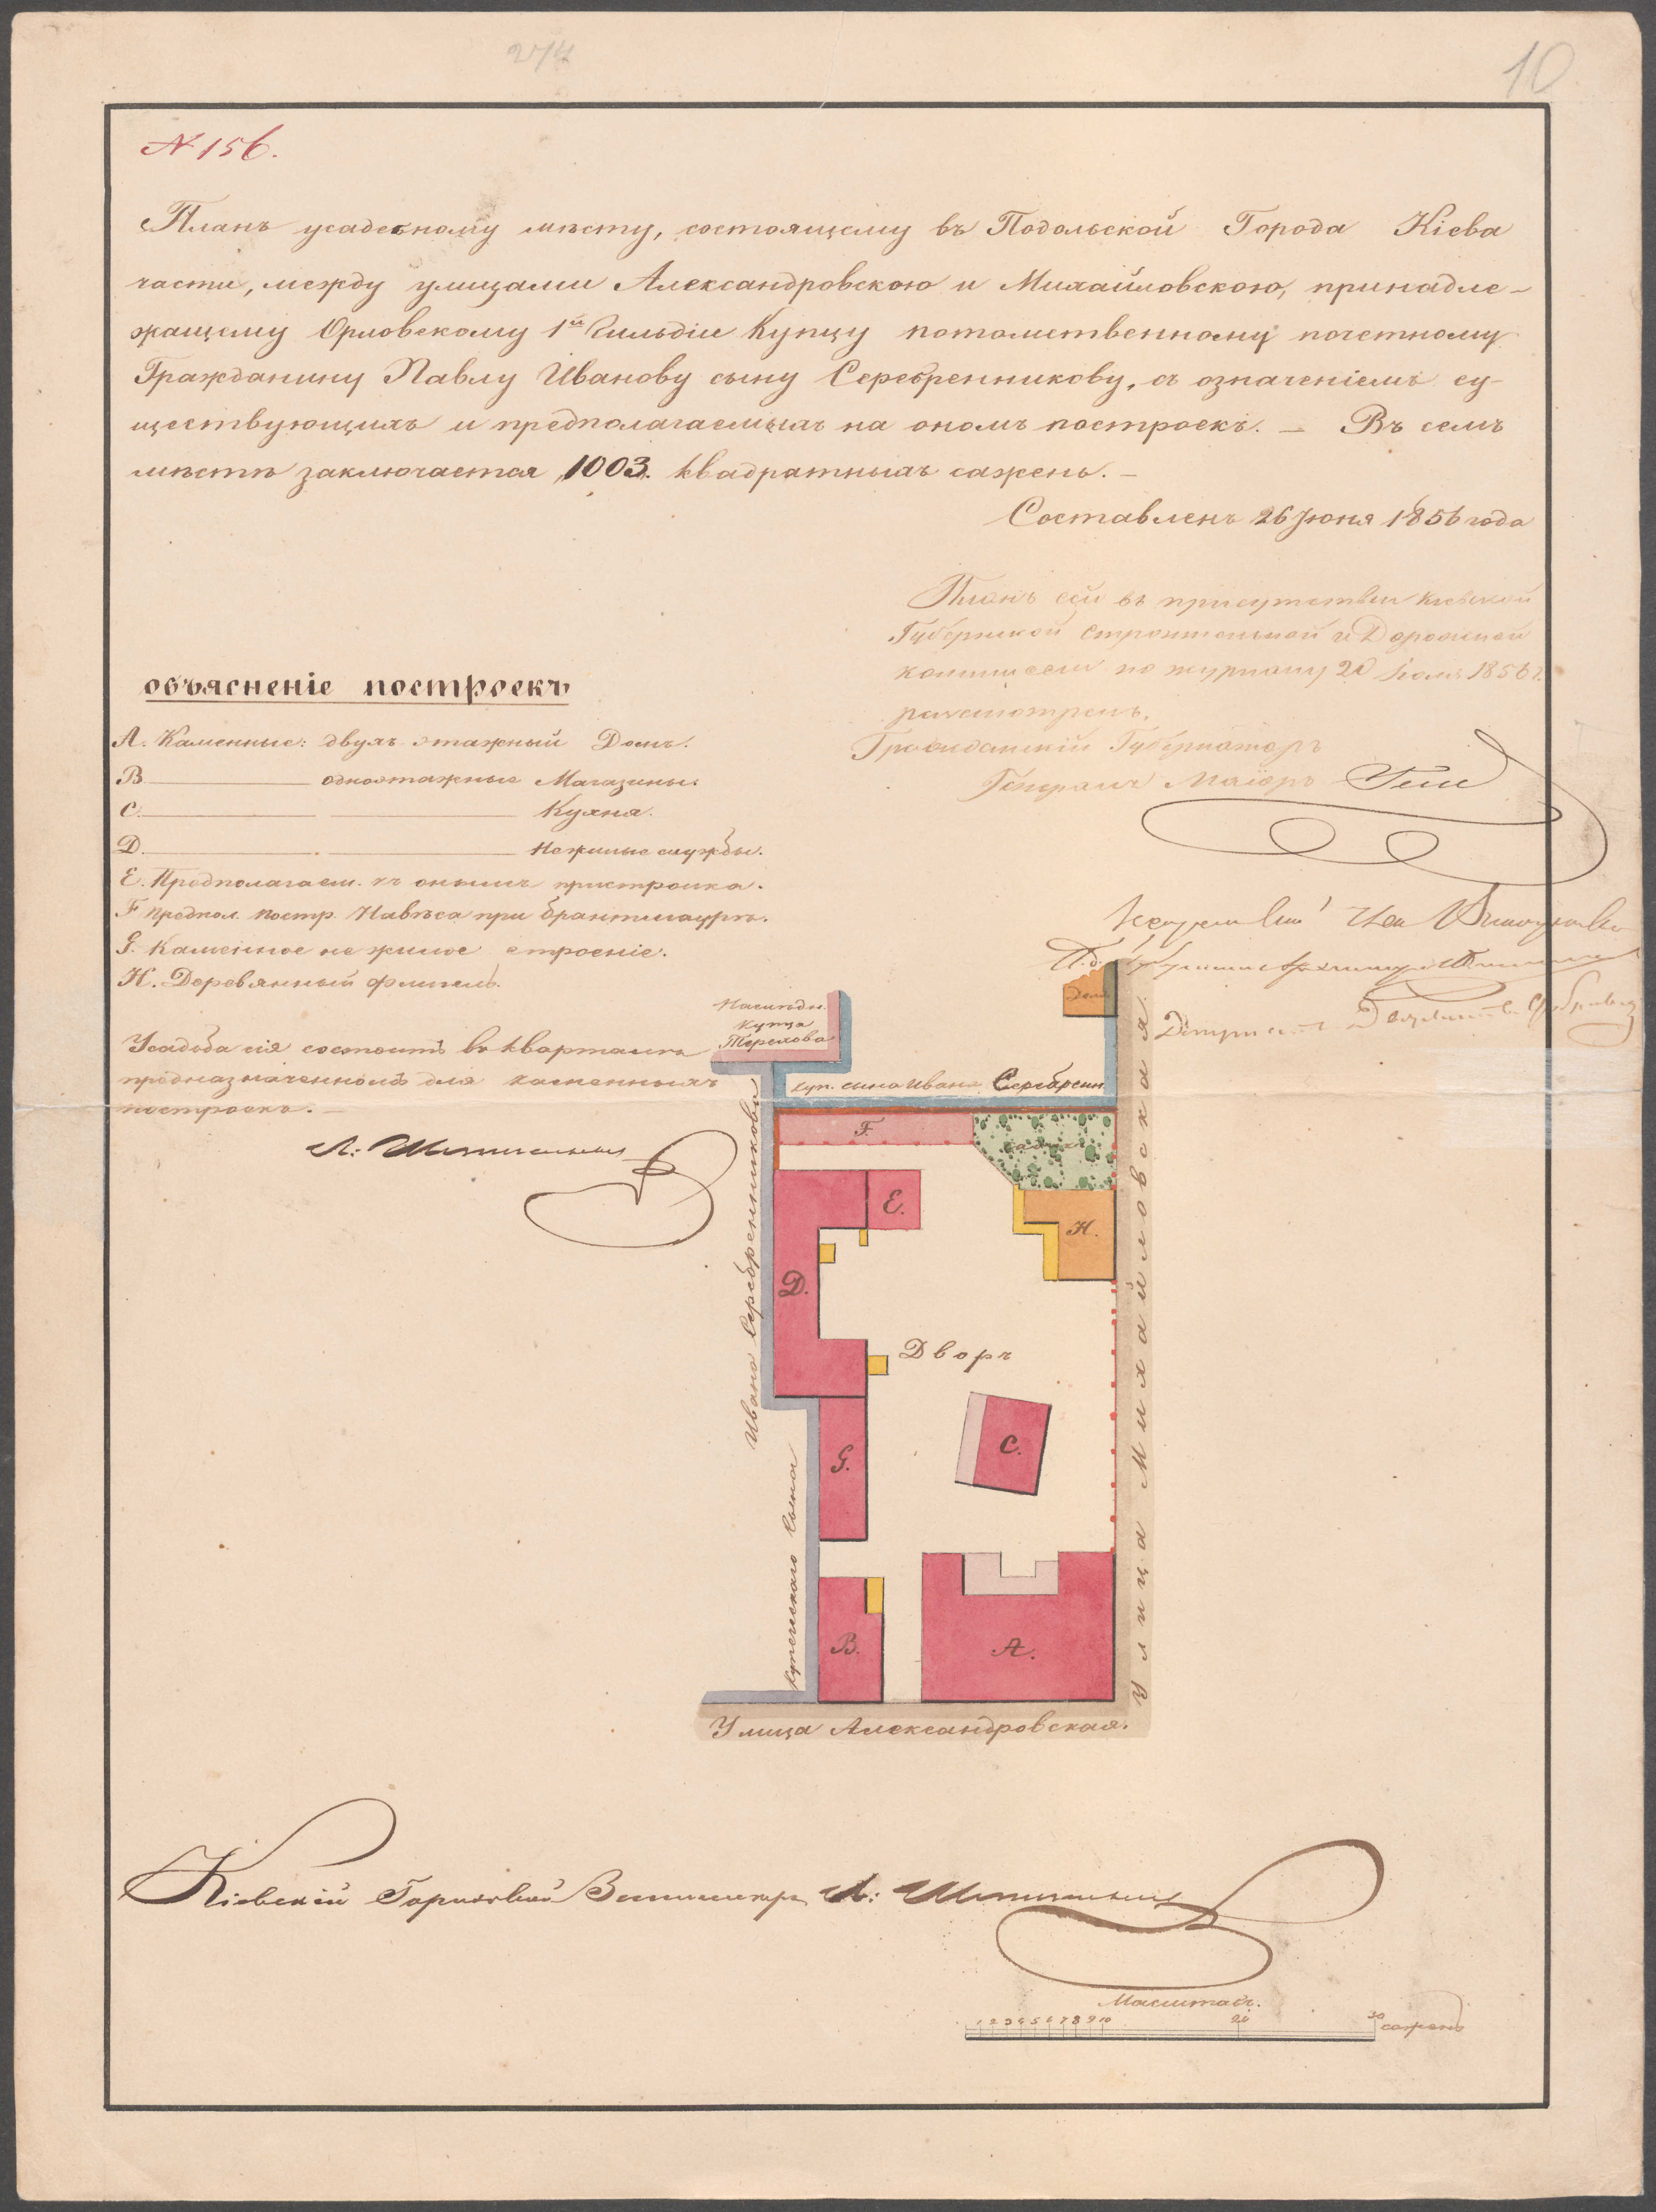 274
10
N 156.
Планъ усадебному мѣсту, состоящему въ Подольской Города Кіева
части, между улицами Александровскою и Михайловскою, принадле-
жащему Орловскому 1й Гильдіи Купцу потомственному почетному
Гражданину Павлу Иванову сыну Серебренникову, съ означеніемъ су-
ществующихъ и предполагаемыхъ на ономъ построекъ. — Въ семъ
мѣстѣ заключается 1003. квадратныхъ сажень. —
Составленъ 26 Іюня 1856 года
Планъ сей въ присутствіи Кіевской
Губернской Строительной и Дорожной
коммисіи по журналу 20 Іюля 1856 г.
разсмотренъ.
Гражданскій Губернаторъ
Генералъ Маіоръ
объясненіе построекъ
А. Каменные: двухъ этажный Домъ.
В одноэтажные Магазины.
С. Кухня.
D. Нежилые службы.
Е. Предполагаем. къ онымъ пристройка.
F предпол. постр. Навѣса при брантмаурѣ.
G. Каменное не жилое строеніе.
Н. Деревянный флигель.
Усадьба сія состоитъ въ кварталѣ
предназначенномъ для каменныхъ
построекъ. —
Л:
Наслѣдн.
Купца
Терехова
Домъ
куп. сына Ивана Серебренн.
F.
садикъ
Е.
Н.
D.
Дворъ
С.
G.
В.
А.
Купеческаго Сына Ивана Серебренникова
Улица Михайловская
Улица Александровская.
Кіевскій Городовой Землемѣръ Л:
Масштабъ.
1 2 3 4 5 6 7 8 9 10 20 30 сажень